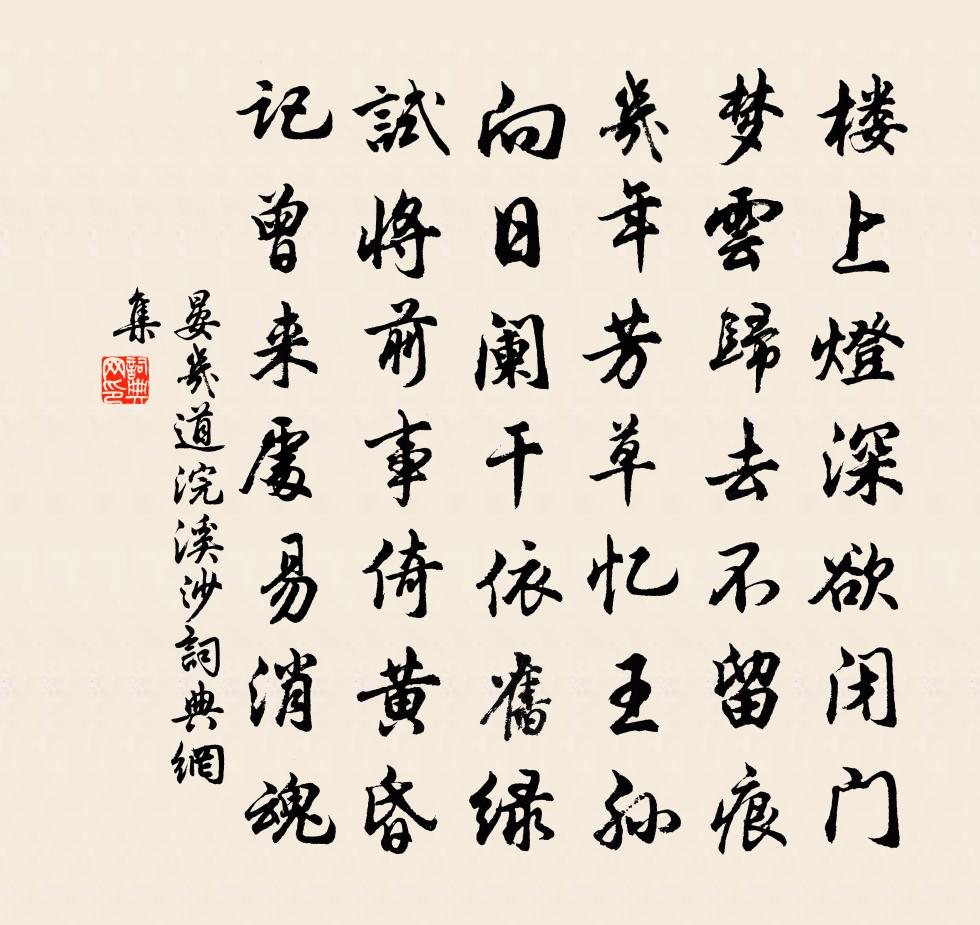 楼上燈深欲闭门
梦雲歸去不留痕
幾年芳草忆王孙
向日阑干依舊绿
試將前事倚黄昏
记曾来處易消魂
晏幾道浣溪沙詞典網
集
詞典
网印